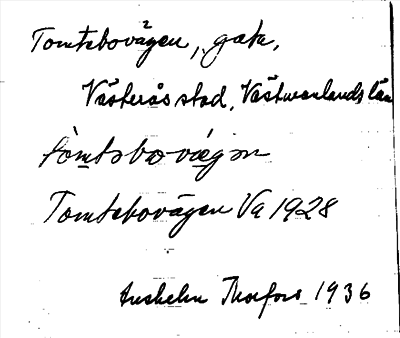 Tomtebovägen, gata,
Västerås stad, Västmanlands län
tòmtəbovæ̀gən
Tomtebovägen Va 1928
Anshelm Thorfors 1936